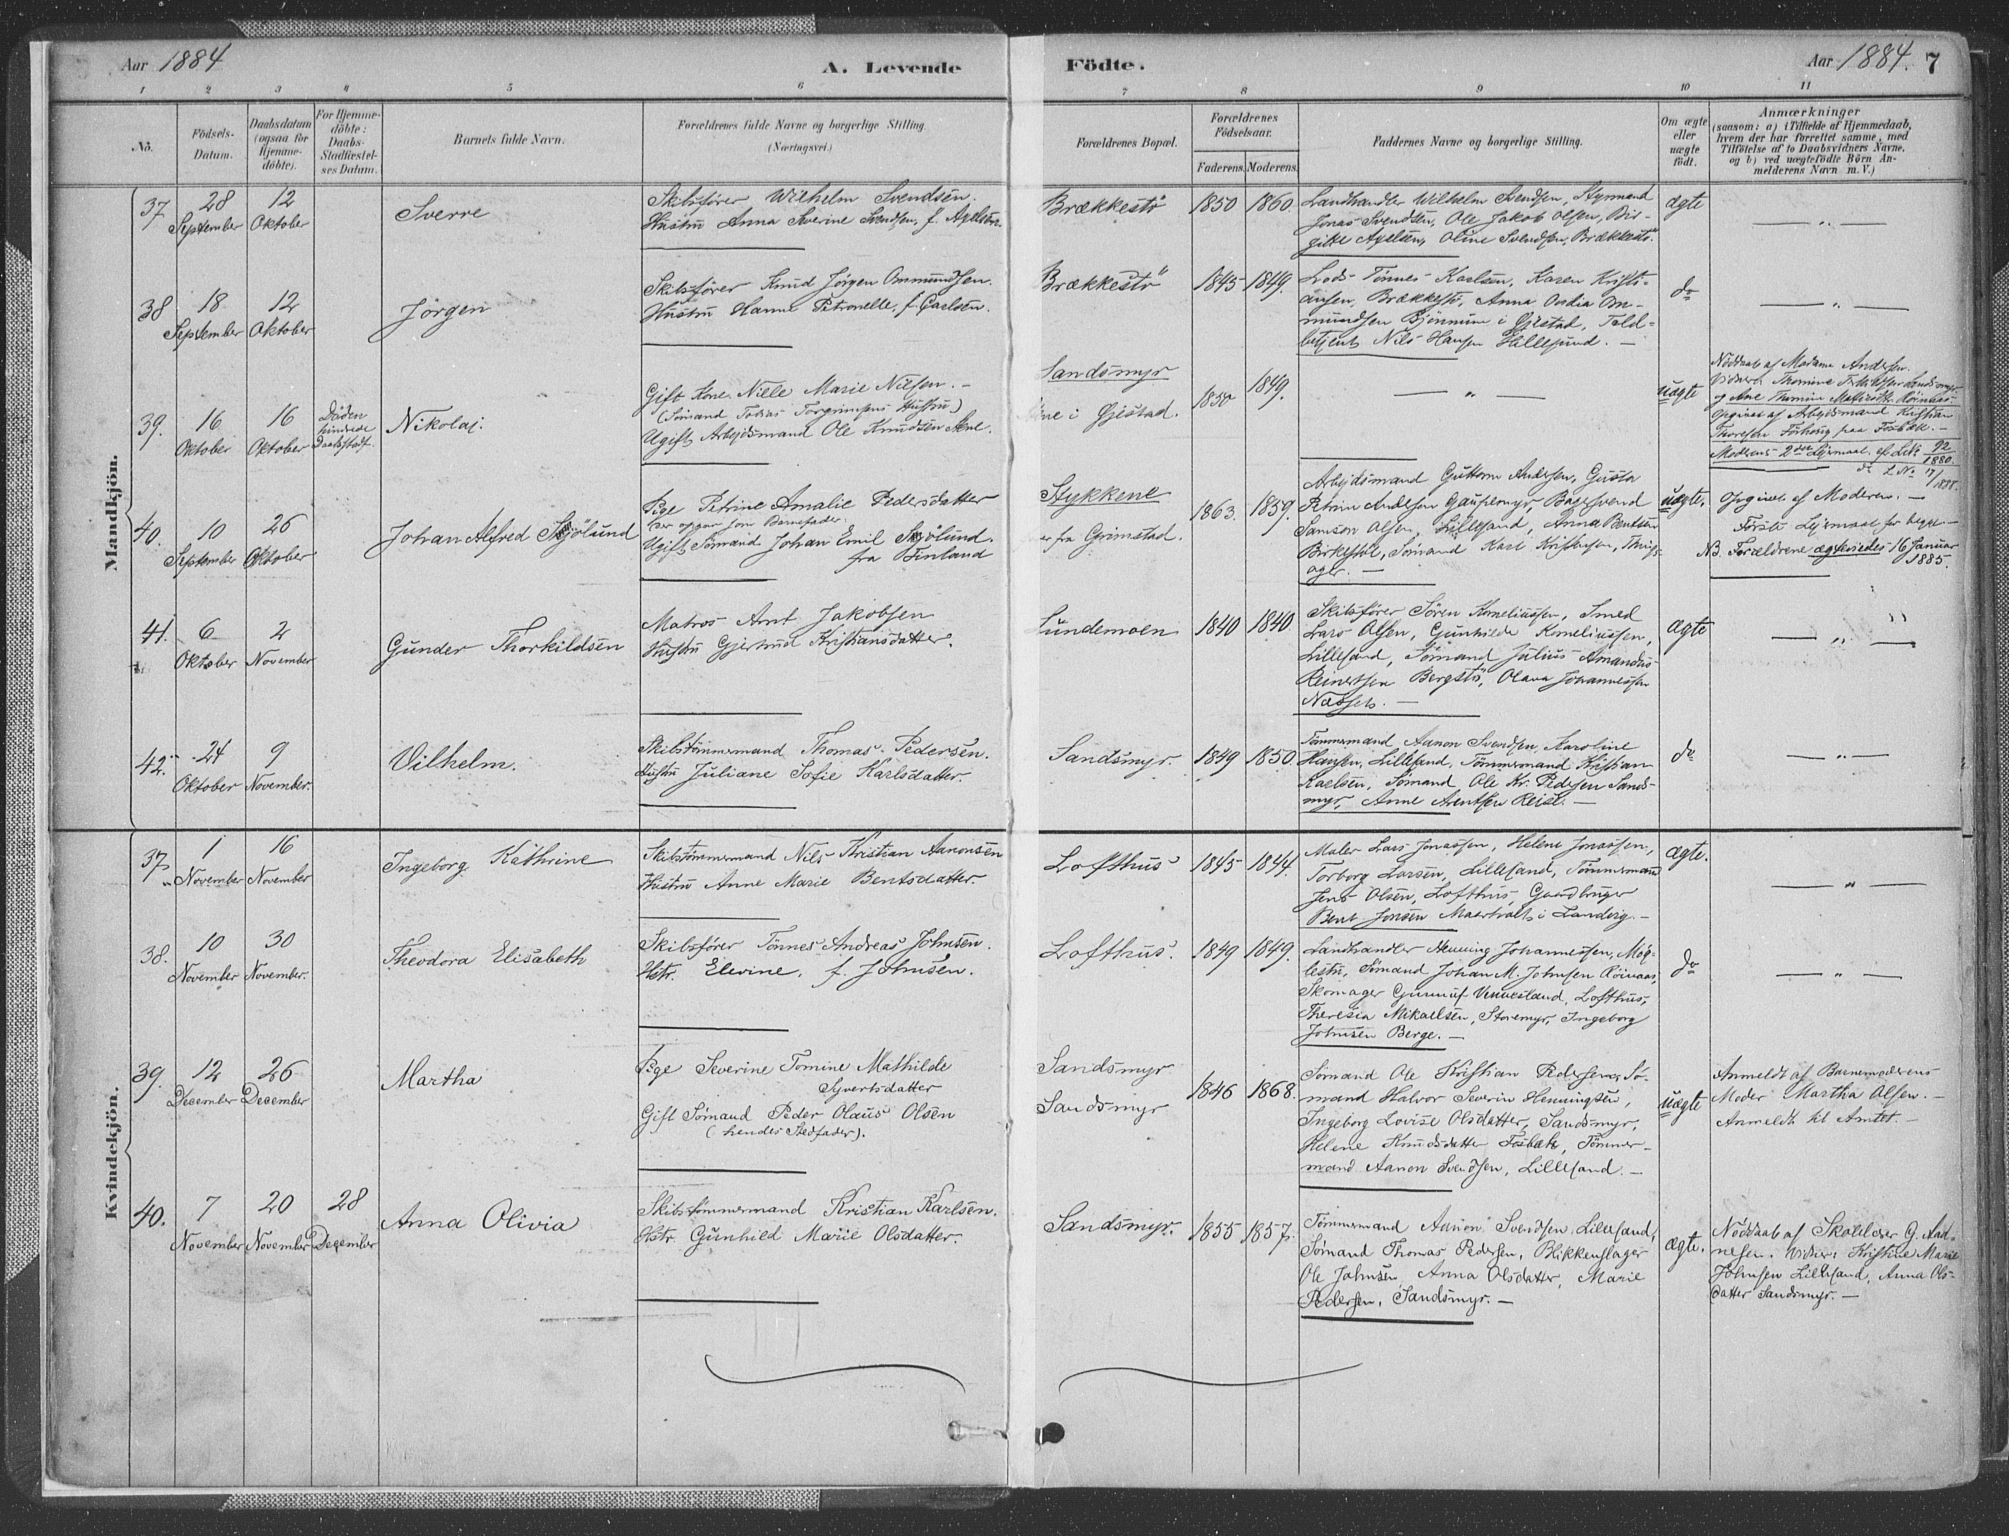 Aar 1884
A. Levende
Födte.
Aar 1884. 7
1 2 3 4 5 6 7 8 9 10 11
No.
Födsels-
Datum.
Daabsdatum
(ogsaa for
Hjemme-
döbte).
For Hjemme-
döbte:
Daabs-
Stadfæstel-
ses Datum.
Barnets fulde Navn.
Forældrenes fulde Navne og borgerlige Stilling
(Næringsvei.)
Forældrenes Bopæl.
Forældrenes
Födselsaar.
Faderens. Moderens.
Faddernes Navne og borgerlige Stilling.
Om ægte
eller
uægte
födt.
Anmærkninger
(saasom: a) i Tilfælde af Hjemmedaab,
hvem der har forrettet samme, med
Tilföielse af to Daabsvidners Navne,
og b) ved uægtefödte Börn An-
melderens Navn m. V.)
Mandkjön.
37
28
September
12
Oktober
Sverre
Skibsfører Wilhelm Svendsen.
Hustru Anna Severine Svendsen, f. Axelsen.
Brækkestö
1850 1860.
Landhandler Wilhelm Svendsen, Styrmand
Jonas Svendsen, Ole Jakob Olsen, Bir-
gitte Axelsen, Oline Svendsen, Brækkestö.
ægte
— „ —
38
18
September
12
Oktober
Jörgen
Skibsfører Knud Jörgen Ommundsen.
Hustru Hanne Petronelle, f. Carlsen.
Brækkestö
1845 1849.
Lods Tönnes Karlsen, Karen Kristi-
ansen, Brækkestö, Anna Om-
mundsen Bjönnum i Ejestad, Told-
betjent Nils Hansen Lillesand. —
do
— „ —
39.
16
Oktober
16
Oktober
Döden
hindrede
Daabsstadf.
Nikolaj.
Gift Kone Nille Marie Nilsen. —
(Sömand Tobias Torgrimsens Hustru)
Ugift Arbejdsmand Ole Knudsen
Sandsmyr
i Ejestad.
1850 1849.
— „ —
uægte
Nöddaab af Madame Andersen.
Vidner: Thomine
og Ane
Opgivet af Arbejdsmand Kristian
Thoresen paa Fosbæk. —
Moderens 2det Lejermaal, cf. Litr. 92/1880.
40.
10
September
26
Oktober
Johan Alfred Sjölund
Pge Petrine Amalie Pedersdatter
opgav som Barnefader
Ugift Sömand Johan Emil Sjölund.
fra Finland
Stykkene
fra Grimstad.
1863. 1859.
Arbejdsmand Guttorm Andersen, Gusta
Petrine Andersen Gauslemyr, Bagersvend
Samson Olsen, Lillesand, Anna Bentsen
Birkestöl, Sömand Karl Kristensen,
ager. —
uægte.
Opgivet af Moderen. —
Förste Lejermaal for begge. —
NB. Forældrene ægteviedes 16 Januar
1885.
41.
6
Oktober
2
November
Gunder Thorkildsen
Matros Arnt Jakobsen
Hustru Gjertrud Kristiansdatter.
Lundemoen
1840 1840.
Skibsfører Sören Korneliussen, Smed
Lars Olsen, Gunhilde Korneliussen,
Lillesand, Sömand Julius Amandus
Reinertsen Bergstö, Olava Johannessen
Næsset. —
ægte
— „ —
42.
24
Oktober
9
November.
Vilhelm.
Skibstömmermand Thomas Pedersen.
Hustru Juliane Sofie Karlsdatter.
Sandsmyr
1849 1850.
Tömmermand Aanon Svendsen, Karoline
Hansen, Lillesand, Tömmermand Kristian
Karlsen, Sömand Ole Kr. Pedersen Sands-
myr, Anne Arntsen Reise. —
do
— „ —
Kvindekjön.
37
1
November
16
November
Ingeborg Kathrine
Skibstömmermand Nils Kristian Aanonsen
Hustru Anne Marie Bentsdatter.
Lofthus
1845 1844.
Maler Lars Jonassen, Helene Jonassen,
Torborg Larsen, Lillesand, Tömmermand
Jens Olsen, Lofthus, Gaardbruger
Bent Jensen i Landvig. —
ægte.
— „ —
38.
10
November
30
November.
Theodora Elisabeth
Skibsfører Tönnes Andreas Johnsen.
Hstr. Elevine, f. Johnsen.
Lofthus.
1849 1849.
Landhandler Henning Johannessen, Møg-
lestu, Sömand Johan M. Johnsen Röinaas,
Skomager Gunnuf Vennesland, Lofthus,
Theresia Mikaelsen, Storemyr, Ingeborg
Johnsen Berge. —
do
— „ —
39.
12
December
26
December
Martha
Pge Severine Tomine Mathilde
Syvertsdatter
Gift Sömand Peder Olaus Olsen
(hendes Stedfader).
Sandsmyr
Sandsmyr
1846 1868.
Sömand Ole Kristian Pedersen, Sö-
mand Halvor Severin Henningsen,
Ingeborg Lovise Olsdatter, Sandsmyr,
Helene Knudsdatter Fosbæk, Tömmer-
mand Aanon Svendsen, Lillesand. —
uægte
Anmeldt af Barnemoderens
Moder Martha Olsen. —
Anmeldt til Amtet. —
40.
7
November
20
November
28
December
Anna Olivia
Skibstömmermand Kristian Karlsen.
Hstr. Gunhild Marie Olsdatter.
Sandsmyr.
1855 1857.
Tömmermand Aanon Svendsen, Lillesand,
Sömand Thomas Pedersen, Blikkenslager
Ole Johnsen, Anna Olsdatter, Marie
Pedersen, Sandsmyr. —
ægte.
Nöddaab af Skolelærer G. Aad-
nesen. Vidner: Kristine Marie
Johnsen Lillesand, Anna Ols-
datter Sandsmyr. —